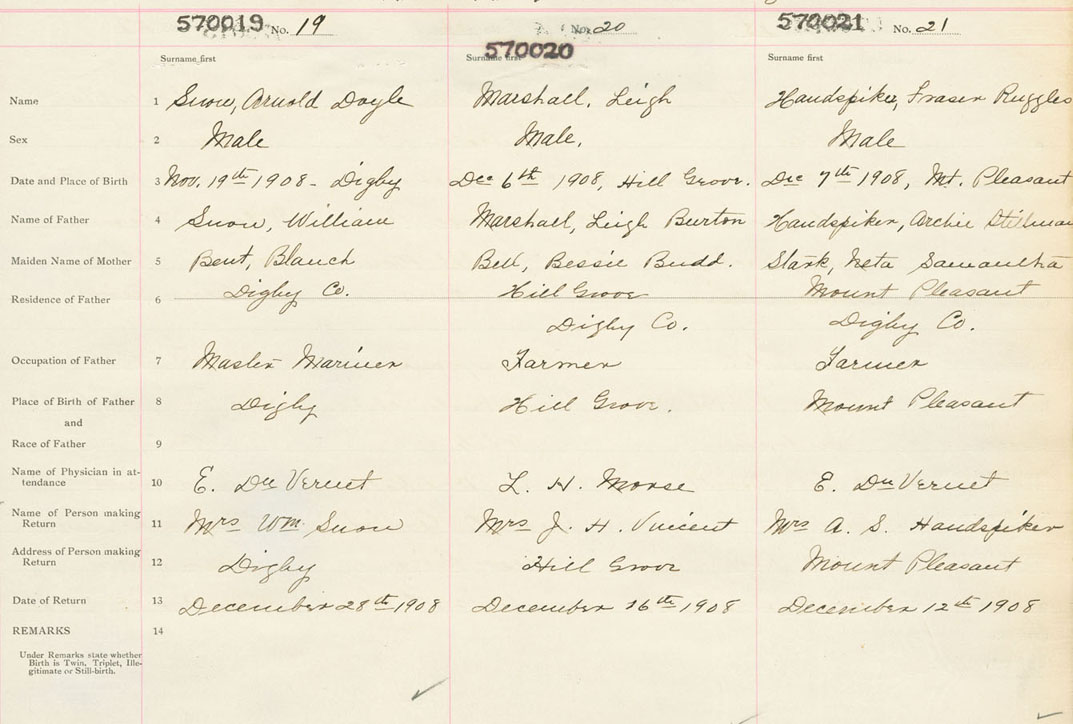 570019 No. 19 No. 20 570021 No. 21
570020
Surname first Surname first Surname first
Name 1 Snow, Arnold Doyle Marshall, Leigh Handspiker, Fraser Ruggles
Sex 2 Male Male. Male
Date and Place of Birth 3 Nov. 19th 1908 - Digby Dec 6th 1908, Hill Grove. Dec 7th 1908, Mt. Pleasant
Name of Father 4 Snow, William Marshall, Leigh Burton Handspiker, Archie Stillman
Maiden Name of Mother 5 Bent, Blanch Bell, Bessie Budd. Stark, Neta Samantha
Residence of Father 6 Digby Co. Hill Grove Mount Pleasant
Digby Co. Digby Co.
Occupation of Father 7 Master Mariner Farmer Farmer
Place of Birth of Father 8 Digby Hill Grove. Mount Pleasant
and
Race of Father 9
Name of Physician in at-
tendance 10 E. Du Vernet L. H. Morse E. Du Vernet
Name of Person making
Return 11 Mrs Wm. Snow Mrs J. H. Vincent Mrs A. S. Handspiker
Address of Person making
Return 12 Digby Hill Grove Mount Pleasant
Date of Return 13 December 28th 1908 December 16th 1908 December 12th 1908
REMARKS 14
Under Remarks state whether
Birth is Twin, Triplet, Ille-
gitimate or Still-birth.